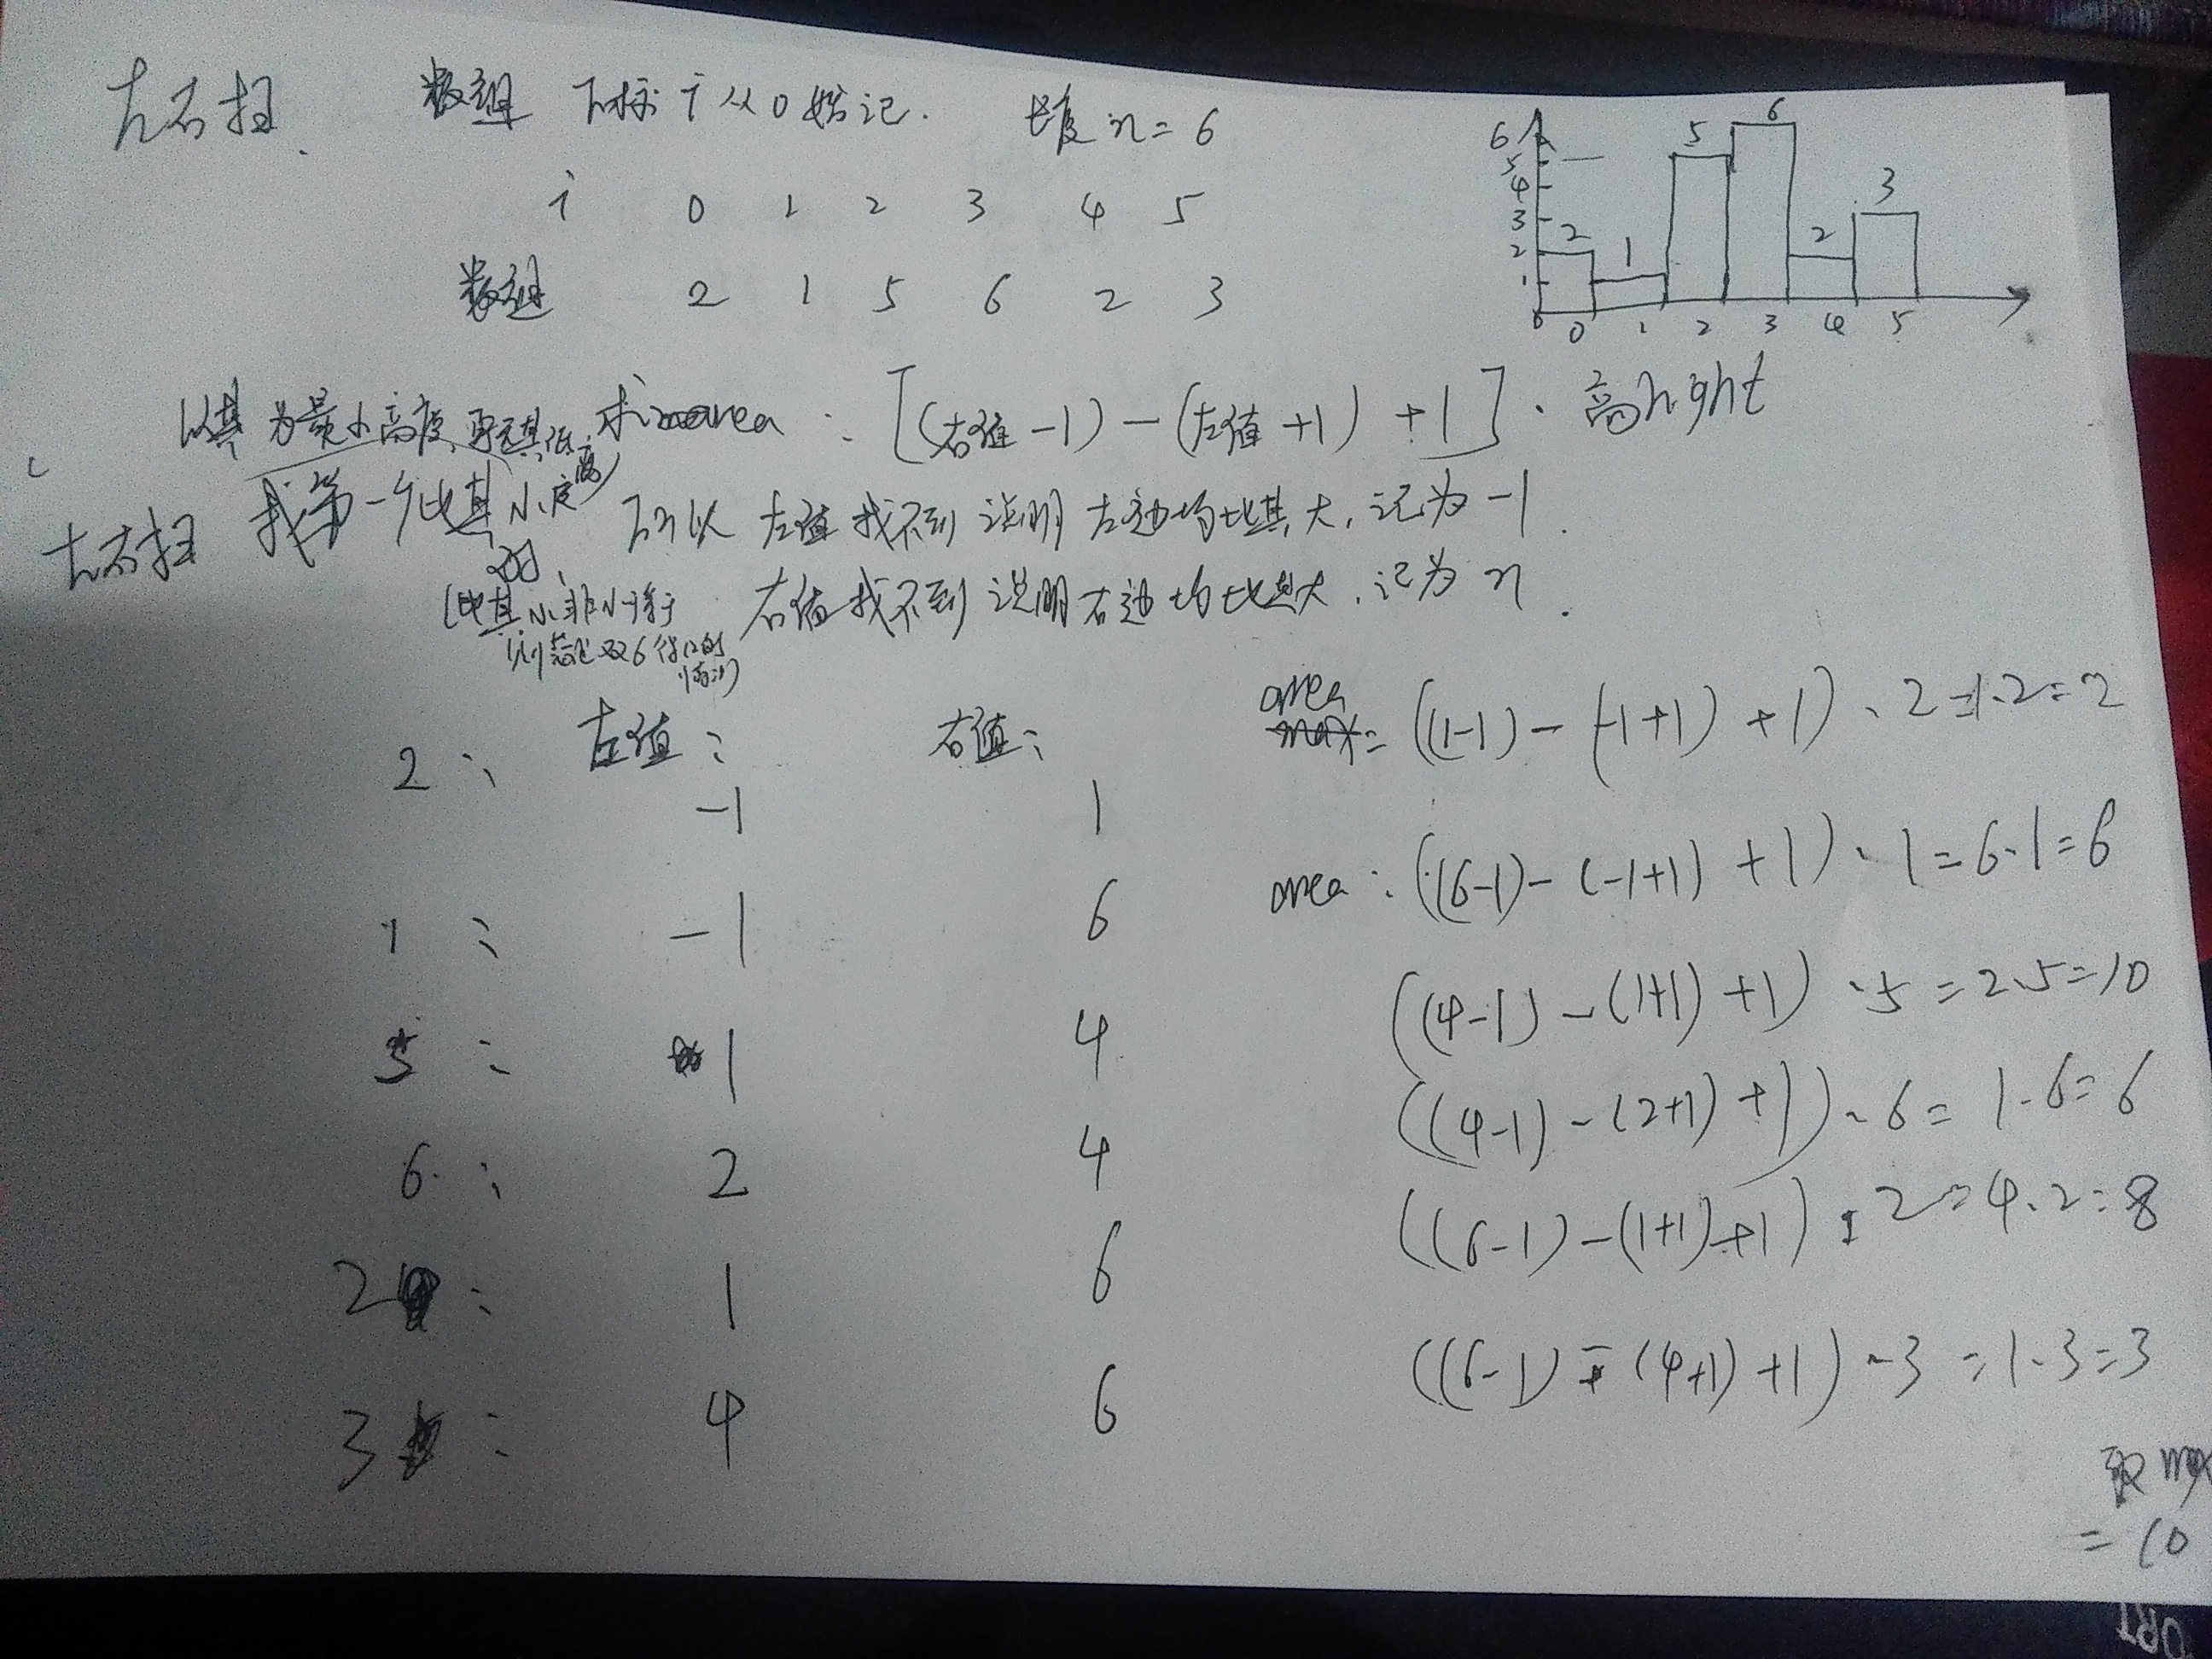 左右扫. 数组 下标 i 从 0 始记. 长度 n = 6
i 0 1 2 3 4 5
数组 2 1 5 6 2 3
6 5 4 3 2 1 0
2 1 5 6 2 3
0 1 2 3 4 5
以其为最小高度, 求area : [(右值 -1) - (左值 +1) +1] · 高hight
左右扫 找第一个比其小的 所以 左值找不到 说明 左边均比其大, 记为 -1.
(比其小, 非小于等于 右值找不到 说明右边均比其大, 记为 n.
2: 左值: -1 右值: 1 area = ((1-1) - (-1+1) +1) · 2 = 1·2 = 2
1: -1 6 area: ((6-1) - (-1+1) +1) · 1 = 6·1 = 6
5: 1 4 ((4-1) - (1+1) +1) · 5 = 2·5 = 10
6: 2 4 ((4-1) - (2+1) +1) · 6 = 1·6 = 6
2: 1 6 ((6-1) - (1+1) +1) · 2 = 4·2 = 8
3: 4 6 ((6-1) - (4+1) +1) · 3 = 1·3 = 3
取max
= 10